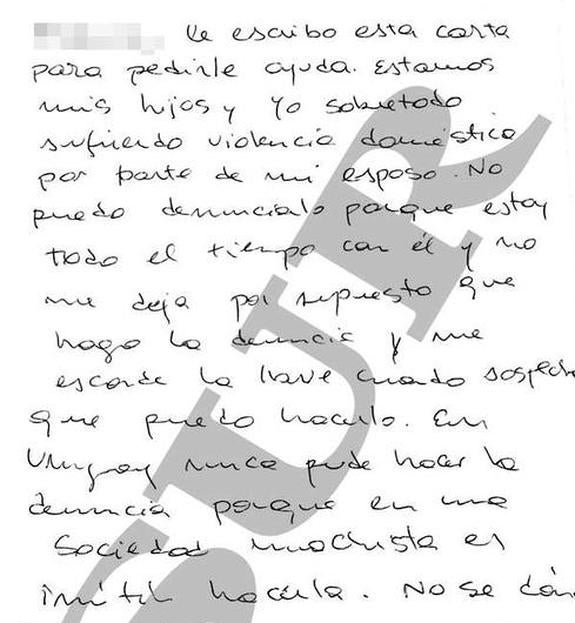 le escribo esta carta
para pedirle ayuda. Estamos
mis hijos y yo sobretodo
sufriendo violencia doméstica
por parte de mi esposo. No
puedo denuncialo porque estoy
todo el tiempo con él y no
me deja por supuesto que
haga la denuncia y me
esconde la llave cuando sospecha
que puedo hacerlo. En
Uruguay nunca pude hacer la
denuncia porque en una
sociedad machista es
inútil hacerla. No se cóm
SUR